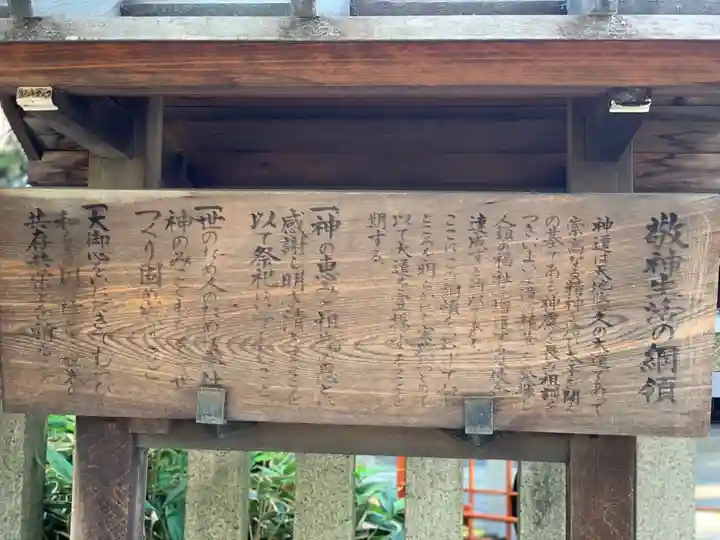 敬神生活の綱領
神道は天地悠久の大道であって
崇高なる精神を培ひ太平を開く
の基である神慮を畏み祖訓を
つぎいよいよ道の精華を発揮し
人類の福祉を増進するは使命を
達成する所以である
ここにこの綱領
ところを明らかにし実践につとめて
以て大道を宣揚することを
期する
一神の恵みと祖先の恩とに
感謝し明き清きまことを
以て祭祀にいそしむこと
一世のため人のために奉仕
神のみこともちとして世
つくり固め こと
一大御心をいただきてむつび
和らぎ国の隆 世界の
共存共栄を祈ること